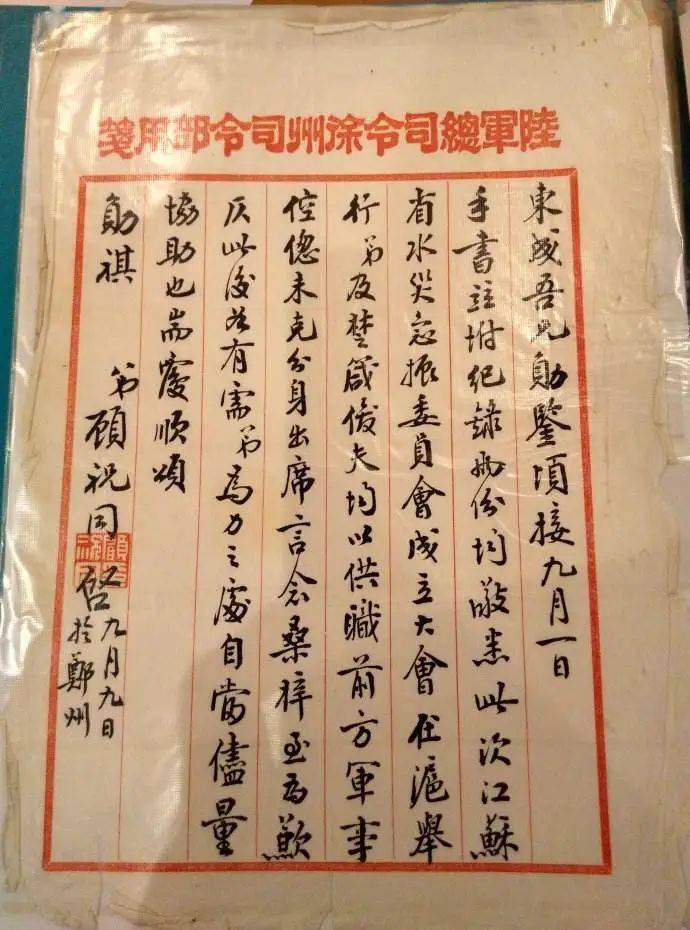 陸軍總司令徐州司令部用箋
東成吾兄勛鑒頃接九月一日
手書竝坿紀錄兩份均敬悉此次江蘇
省水災急振委員會成立大會在滬舉
行弟及楚箴俊夫均以供職前方軍事
倥傯未克分身出席言念桑梓至為歉
仄此後若有需弟為力之處自當儘量
協助也耑覆順頌
勛祺
弟顧祝同啓
九月九日
於鄭州